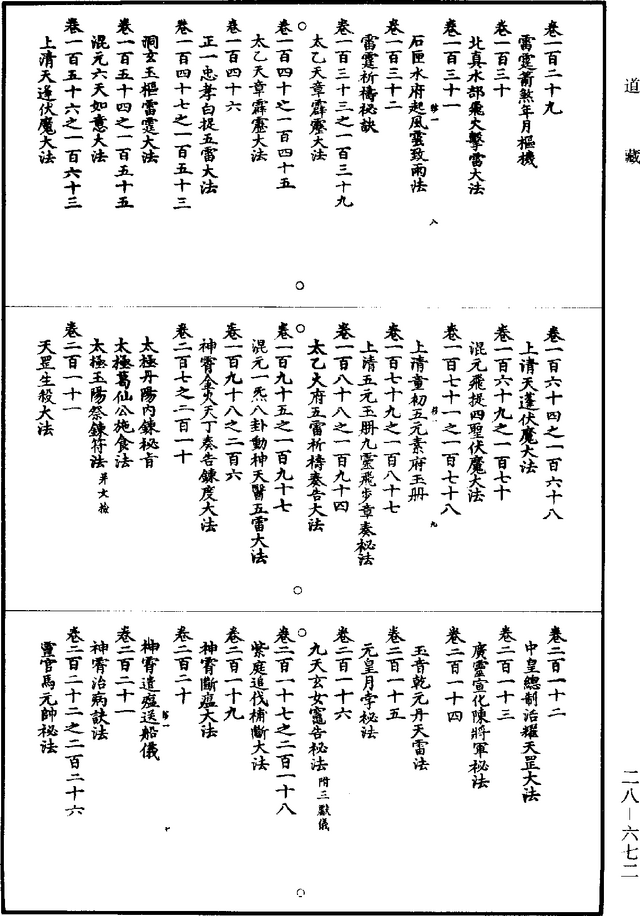 道藏
卷一百二十九
雷霆箭煞年月樞機
卷一百三十
北真水部飛火擊雷大法
卷一百三十一
石匣水府起風雲致雨法
卷一百三十二
雷霆祈禱秘訣
卷一百三十三之一百三十九
太乙天章霹靂大法
卷一百四十之一百四十五
太乙天章霹靂大法
卷一百四十六
正一忠孝白捉五雷大法
卷一百四十七之一百五十三
洞玄玉樞雷霆大法
卷一百五十四之一百五十五
混元六天如意大法
卷一百五十六之一百六十三
上清天蓬伏魔大法
八
卷一百六十四之一百六十八
上清天蓬伏魔大法
卷一百六十九之一百七十
混元飛捉四聖伏魔大法
卷一百七十一之一百七十八
上清童初五元素府玉冊
卷一百七十九之一百八十七
上清五元玉冊九靈飛步章奏秘法
卷一百八十八之一百九十四
太乙火府五雷祈禱奏告大法
卷一百九十五之一百九十七
混元一炁八卦動神天醫五雷大法
卷一百九十八之二百六
神霄金火天丁奏告鍊度大法
卷二百七之二百一十
太極丹陽內鍊秘旨
太極葛仙公施食法
太極玉陽祭鍊符法
卷二百一十一
天罡生殺大法
九
卷二百一十二
中皇總制治耀天罡大法
卷二百一十三
廣靈宣化陳將軍秘法
卷二百一十四
玉音乾元丹天雷法
卷二百一十五
元皇月孛秘法
卷二百一十六
九天玄女竈告秘法 附三獻儀
卷二百一十七之二百一十八
紫庭追伐補斷大法
卷二百一十九
神霄斷瘟大法
卷二百二十
神霄遣瘟送船儀
卷二百二十一
神霄治病訣法
卷二百二十二之二百二十六
靈官馬元帥秘法
十
二八—六七二